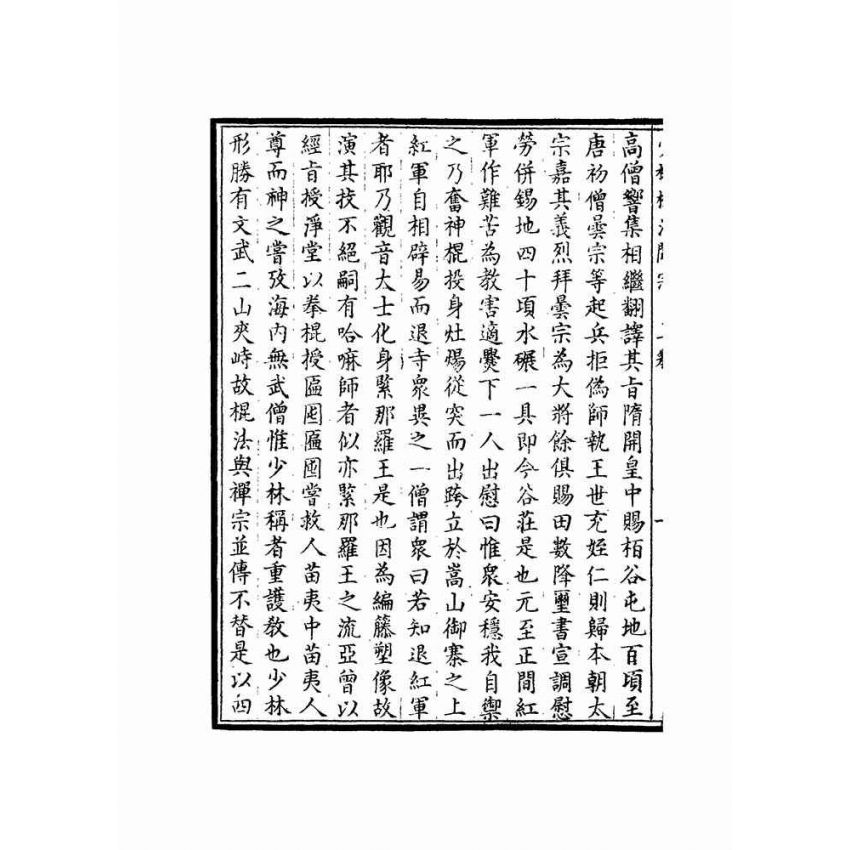 高僧響集相繼翻譯其旨隋開皇中賜栢谷屯地百頃至
唐初僧曇宗等起兵拒偽師執王世充姪仁則歸本朝太
宗嘉其義烈拜曇宗為大將餘俱賜田數降璽書宣調慰
勞併錫地四十頃水碾一具即今谷莊是也元至正間紅
軍作難苦為教害適爨下一人出慰曰惟衆安穩我自禦
之乃奮神棍投身灶煬從突而出跨立於嵩山御寨之上
紅軍自相辟易而退寺衆異之一僧謂衆曰若知退紅軍
者耶乃觀音大士化身緊那羅王是也因為編藤塑像故
演其技不絕嗣有哈嘛師者似亦緊那羅王之流亞曾以
經旨授淨堂以拳棍授匾囤匾囤嘗救人苗夷中苗夷人
尊而神之嘗攷海內無武僧惟少林稱者重護教也少林
形勝有文武二山夾峙故棍法與禪宗並傳不替是以四